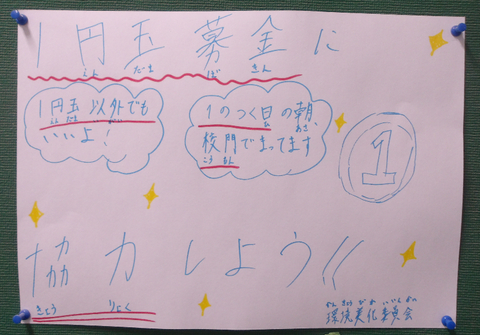 1円玉募金に
えん だま ぼ きん
1円玉以外でも
えん だま いがい
いいよ!
1のつく日の朝、
ひ あさ
校門でまってます
こう もん
1
協力しよう!!
きょう りょく
かん きょう び か い いん かい
環境美化委員会